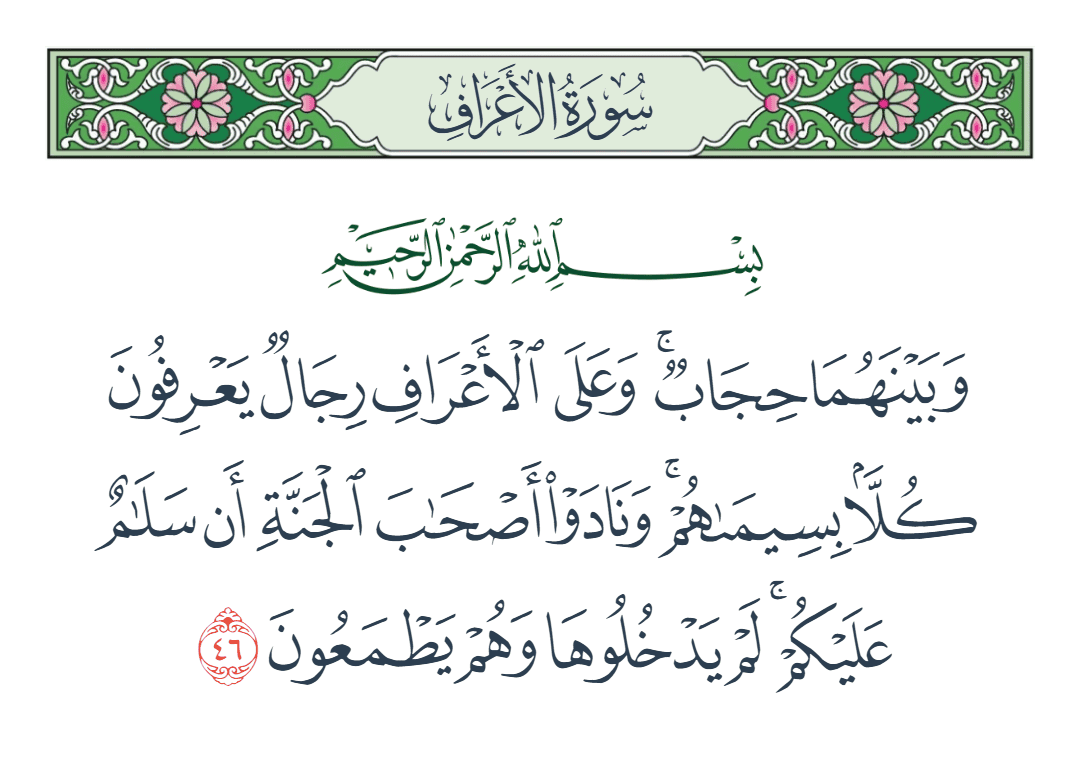 سُورَةُ الأَعْرَافِ
بِسْمِ ٱللَّهِ ٱلرَّحْمَٰنِ ٱلرَّحِيمِ
وَبَيْنَهُمَا حِجَابٌۚ وَعَلَى ٱلْأَعْرَافِ رِجَالٌ يَعْرِفُونَ
كُلَّۢا بِسِيمَىٰهُمْۚ وَنَادَوْا۟ أَصْحَٰبَ ٱلْجَنَّةِ أَن سَلَٰمٌ
عَلَيْكُمْۚ لَمْ يَدْخُلُوهَا وَهُمْ يَطْمَعُونَ ٤٦